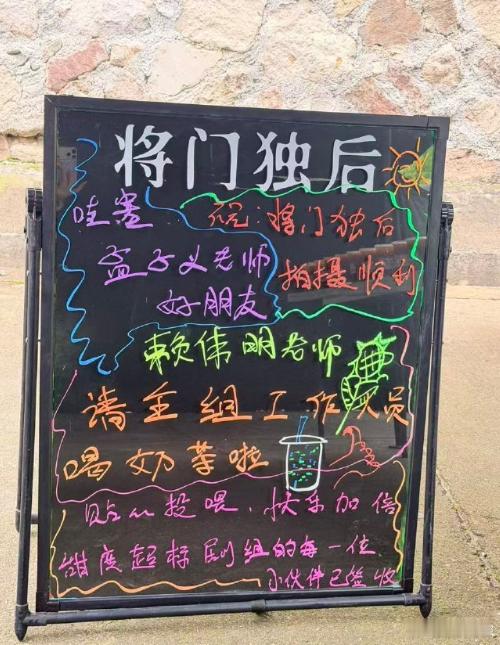 将门独后
哇塞
祝:将门独后
孟子义老师
拍摄顺利
好朋友
赖伟明老师
请全组工作人员
喝奶茶啦
贴心投喂、快乐加倍
甜度超标剧组的每一位
小伙伴已签收